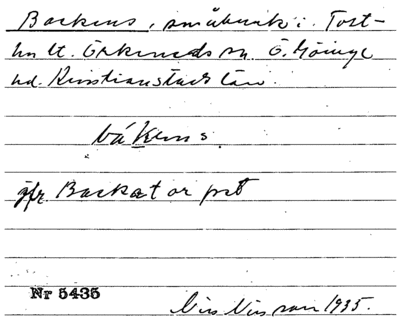 Backens, småbruk i. Tost-
hu lt. Örkeneds sn. Ö. Göinge
hd. Kristianstads län.
båkens.
jfr. Backat or pst
Nr 5435
Nils Nilsson 1935.